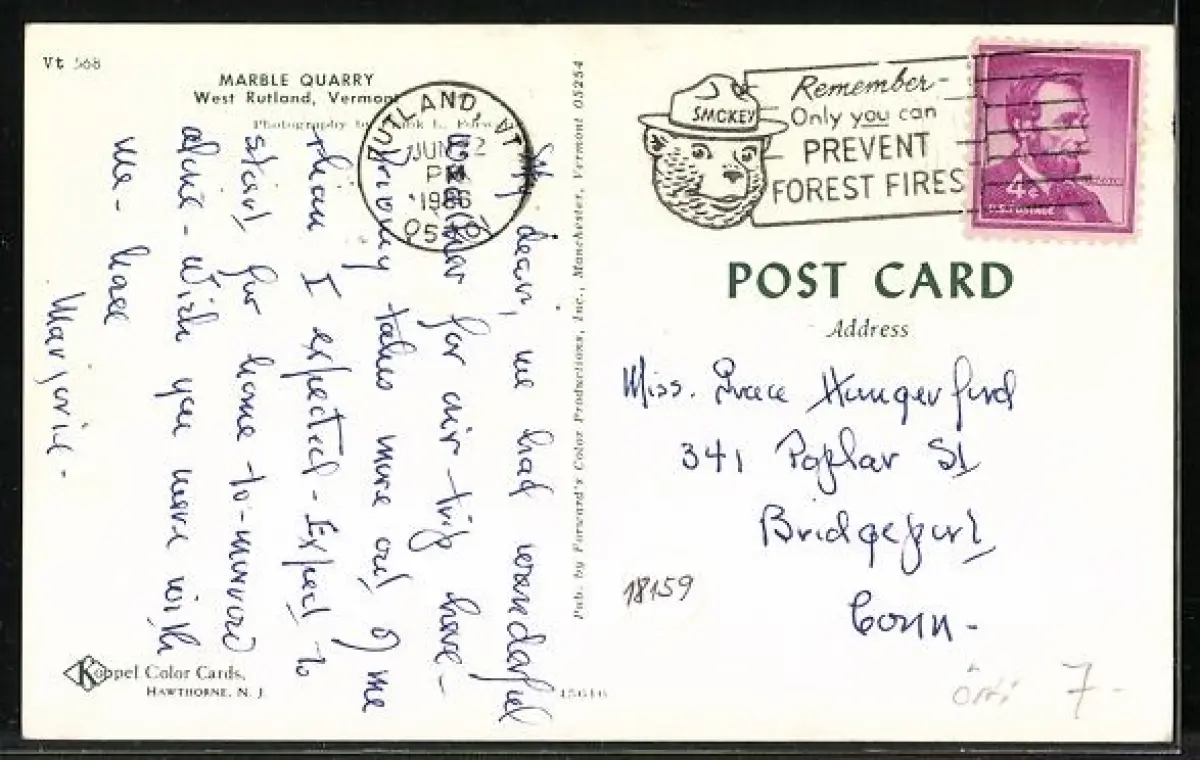 Vt 568
MARBLE QUARRY
West Rutland, Vermont
Photography by
My dear, we had wonderful
weather for air-trip have-
Driving takes more out of me
than I expected - Expect to
start for home to-morrow
alone - Wish you were with
me - love
Marjorie -
RUTLAND, VT
JUN
PM
1966
Pub. by Forward's Color Productions, Inc., Manchester, Vermont 05254
Koppel Color Cards,
HAWTHORNE, N. J.
45616
SMOKEY
Remember-
Only you can
PREVENT
FOREST FIRES
4¢
U.S. POSTAGE
POST CARD
Address
Miss. Grace Hungerford
341 Poplar St
Bridgeport
Conn -
18159
7-